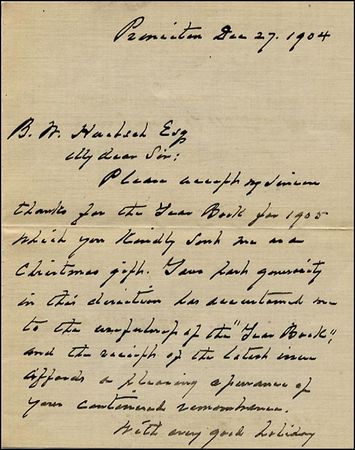 Princeton Dec 27. 1904
B. W. Huebsch Esq
My dear Sir:
Please accept my sincere
thanks for the Year Book for 1905
which you kindly sent me as a
Christmas gift. Your past generosity
in this direction has accustomed me
to the usefulness of the "Year Book",
and the receipt of the latest issue
affords a pleasing assurance of
your continued remembrance.
With every good holiday